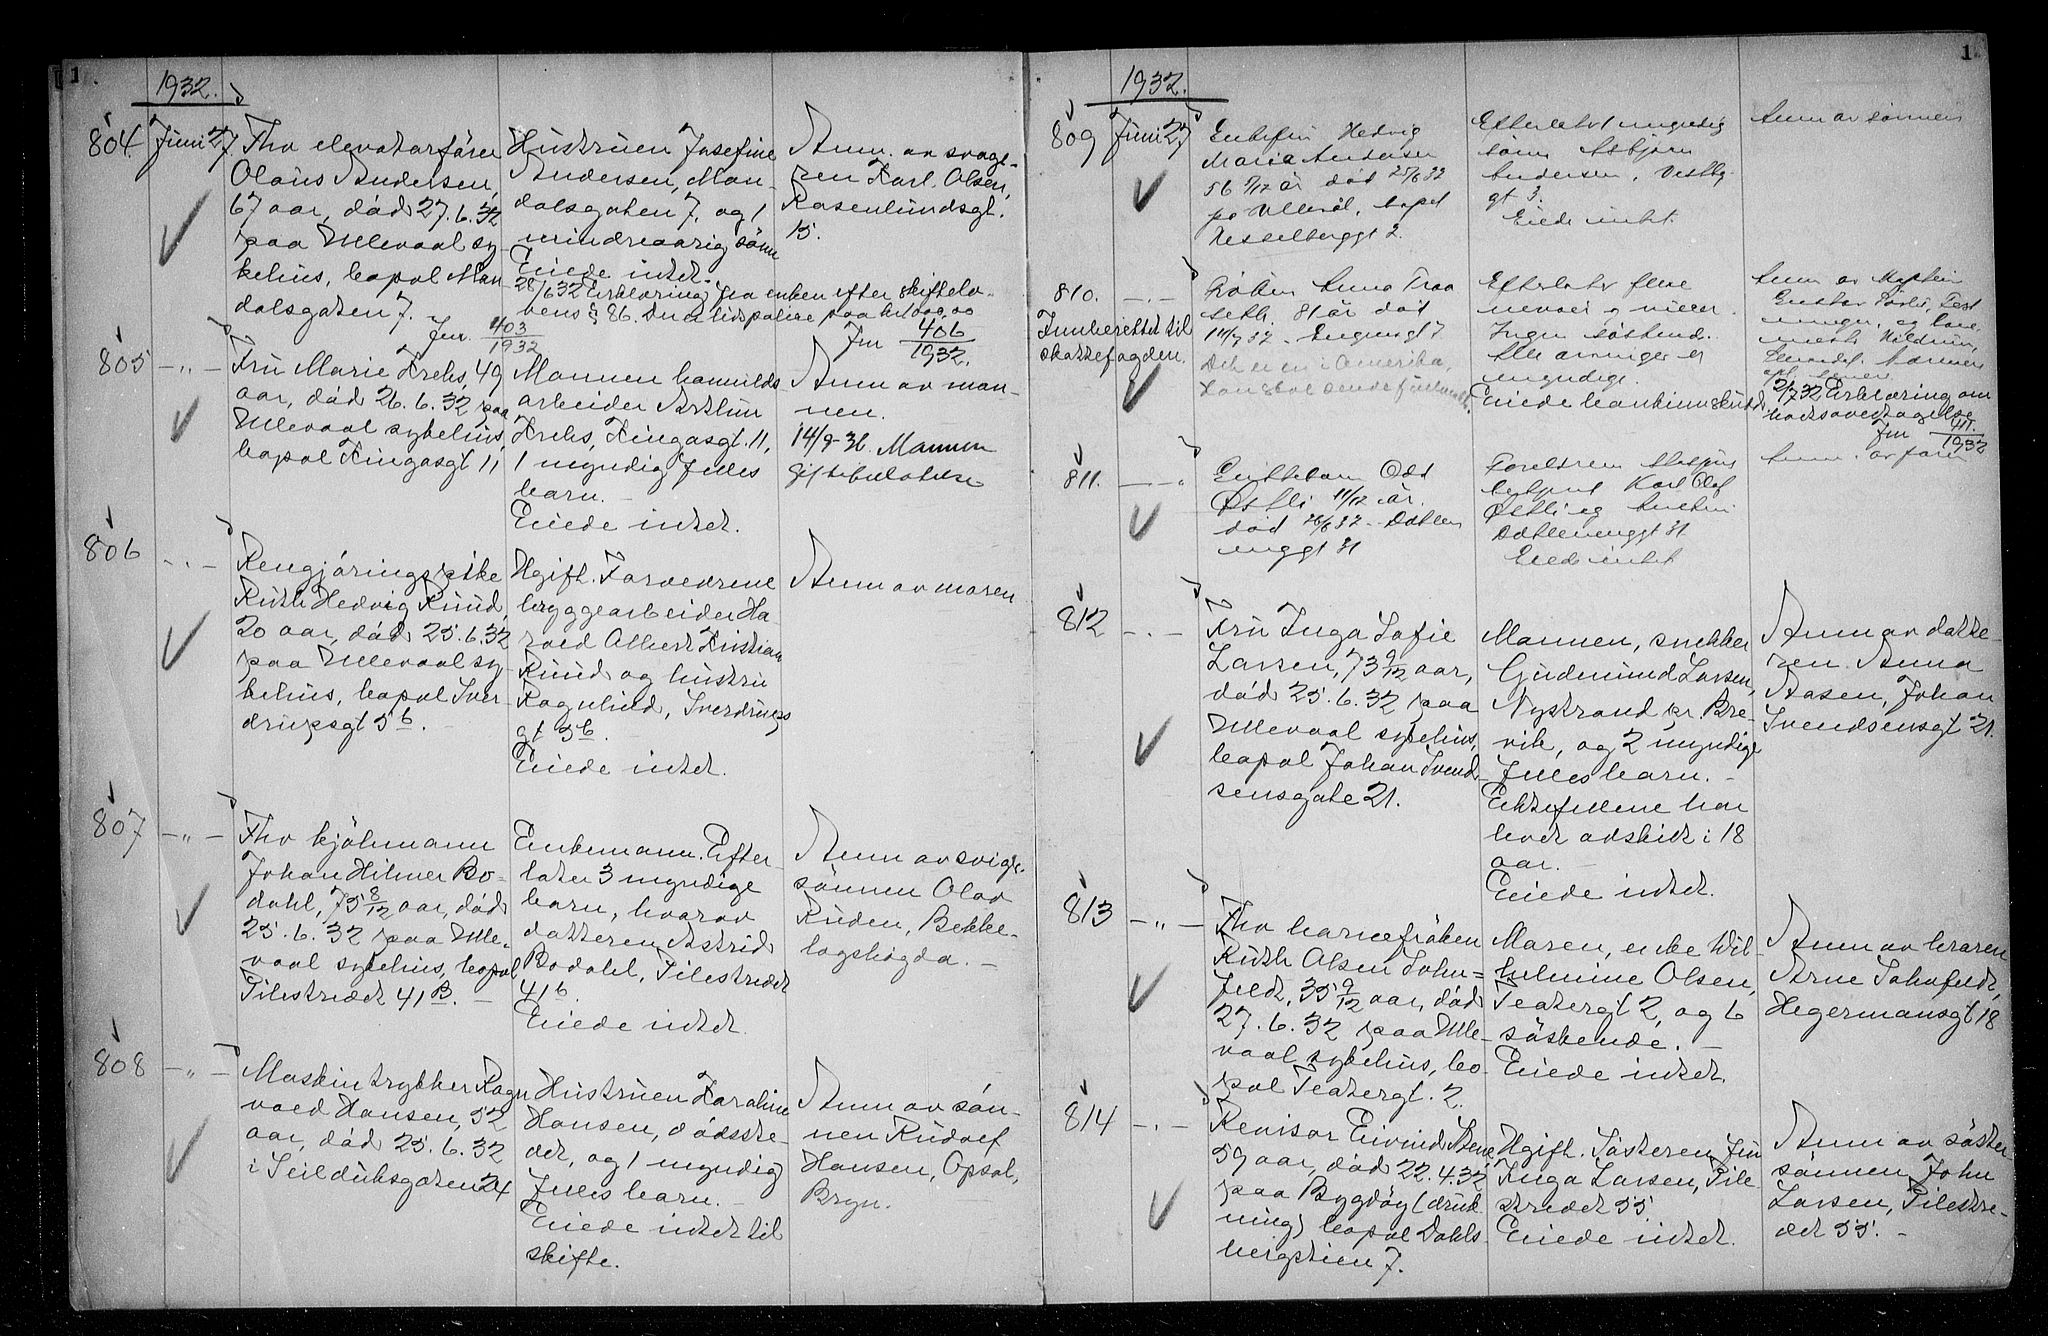 1
1932.
804. Juni 27.
Fhv elevatorfører
Olaus Andersen,
67 aar, død 27.6.32
paa Ullevaal sy-
kehus, bopæl Man
dalsgaten 7.
Hustruen Josefine
Andersen, Man-
dalsgaten 7, og 1
mindreaarig sønn
Eiede intet.
28/6 32 Erklæring fra enken efter skiftelo-
vens § 86. Den
Jnr. 403/1932
Jnr 406/1932.
Anm. av svoge-
ren Karl Olsen,
Rosenlundsgt.
15.
805 - " -
Fru Marie Krehs, 49
aar, død 26.6.32 paa
Ullevaal sykehus,
bopæl Kingosgt 11,
Mannen
arbeider Arthur
Krehs, Kingosgt. 11,
1 myndig felles
barn. -
Eiede intet.
Anm av man-
nen.
14/9-36. Mannen
gifteb
806 - " -
Rengjøringspike
Ruth Hedvig Ruud,
20 aar, død 25.6.32
paa Ullevaal sy-
kehus, bopæl Sver
drupsgt 5b. -
Ugift. Forældrene
bryggearbeider Ha-
rald Albert Kristian
Ruud og hustru
Ragnhild, Sverdrups
gt 5b. -
Eiede intet.
Anm av moren
807 - " -
Fhv kjølmann
Johan Hilmer Bo-
dahl, 75 8/12 aar, død
25.6.32 paa Ulle-
vaal sykehus, bopæl
Pilestrædet 41 B. -
Enkemann. Efter-
later 3 myndige
barn, hvorav
datteren Astrid
Bodahl, Pilestrædet
41 b.
Eiede intet.
Anm av sviger-
sønnen Olav
Ruden, Bekke-
lagshøgda. -
808 - " -
Maskintrykker Ragn
vald Hansen, 52
aar, død 25.6.32
i Seilduksgaten 24
Hustruen Karoline
Hansen, dødsste-
det, og 1 myndig
felles barn. -
Eiede intet til
skifte.
Anm av søn-
nen Rudolf
Hansen, Opsal,
Bryn.
1
1932.
809 Juni 27
Enkefru Hedvig
Maria Andersen
56 år død 25/6 32
på Ullevål, bopel
Hesselberggt 2.
Efterlater 1 myndig
sønn Asbjørn
Andersen,
gt 3.
Eiede intet.
Anm av sønnen
810. - " -
Innberettet til
skattefogden.
Frøken Anna
81 år død
Det er en i Amerika,
Efterlater flere
nevøer og niecer.
Ingen søskend.
Alle arvinger er
myndige.
Anm av
Gustav
2/7 32 Erklæring om
bostovertagelse
Jnr 411./1932
811. - " -
Guttebarn Odd
Østli 11/12 år.
død 26/6 32 - Dæhlen
enggt 31
Foreldrene
betjent Karl Olaf
Østli og hustru
Dæhlenenggt 31
Eiede intet
Anm. av faren
812 - " -
Fru Inga Sofie
Larsen, 73 9/12 aar,
død 25.6.32 paa
Ullevaal sykehus,
bopæl Johan Svend-
sensgate 21.
Mannen, snekker
Gudmund Larsen,
Nystrand pr. Bre-
vik, og 2 myndige
felles barn. -
Ektefellene har
levet adskilt i 18
aar. -
Eiede intet.
Anm av datte-
ren Anna
Aasen, Johan
Svendsensgt 21.
813 - " -
Fhv barnefrøken
Ruth Olsen Sohn-
feldt, 35 9/12 aar, død
27.6.32 paa Ulle-
vaal sykehus, bo-
pæl Teatergt. 2.
Moren, enke Wil-
helmine Olsen,
Teatergt 2, og 6
søskende. -
Eiede intet.
Anm av broren
Arne Sohnfeldt,
Hegermansgt 18
814 - " -
Revisor Eivind Stene,
59 aar, død 22.4.32
paa Bygdøy (druk-
ning) bopæl Dahls-
bergstien 7.
Ugift. Søsteren, fru
Inga Larsen, Pile
strædet 55
Eiede intet.
Anm av søster-
sønnen John
Larsen, Pilestræ-
det 55. -